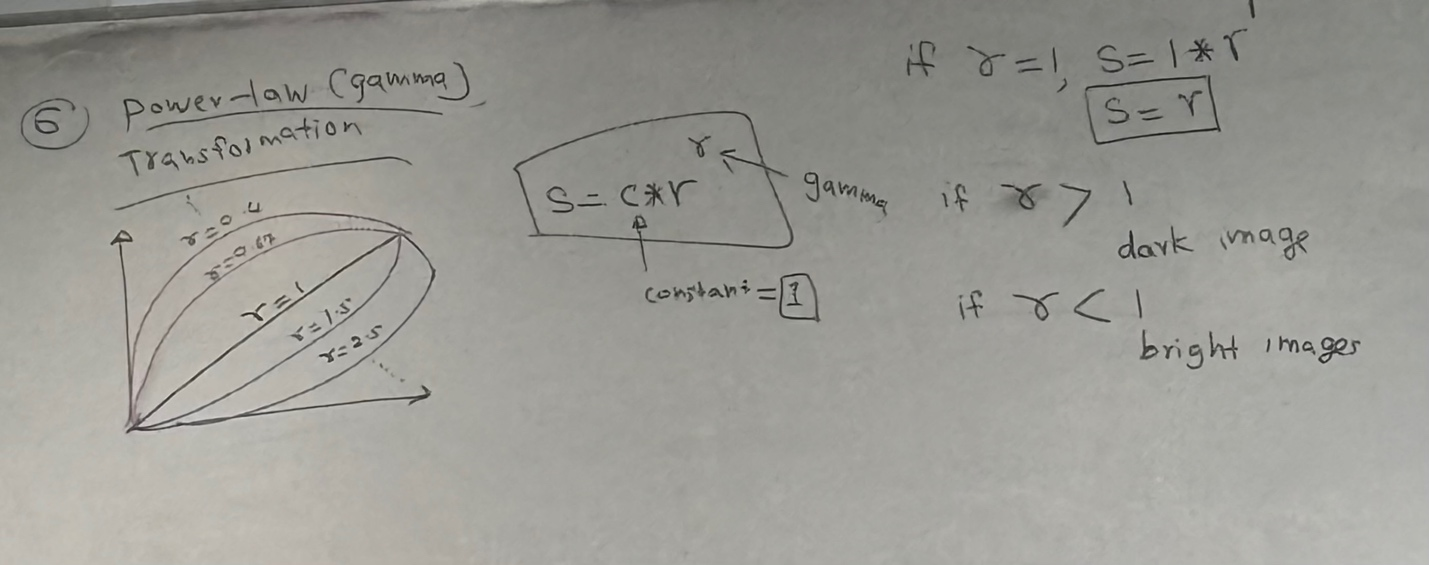 6 Power-law (gamma)
Transformation
γ=0.4
γ=0.67
γ=1
γ=1.5
γ=2.5
S = C*r^γ ← gamma
constant = 1
if γ=1, S=1*r^1
S = r
if γ > 1
dark image
if γ < 1
bright images